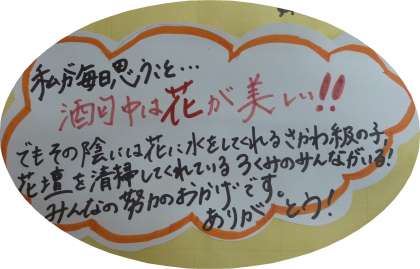 私が毎日思うこと…
酒門中は花が美しい!!
でもその陰には花に水をしてくれるさかわ級の子,
花壇を清掃してくれている3くみのみんながいる!
みんなの努力のおかげです。
ありがとう!